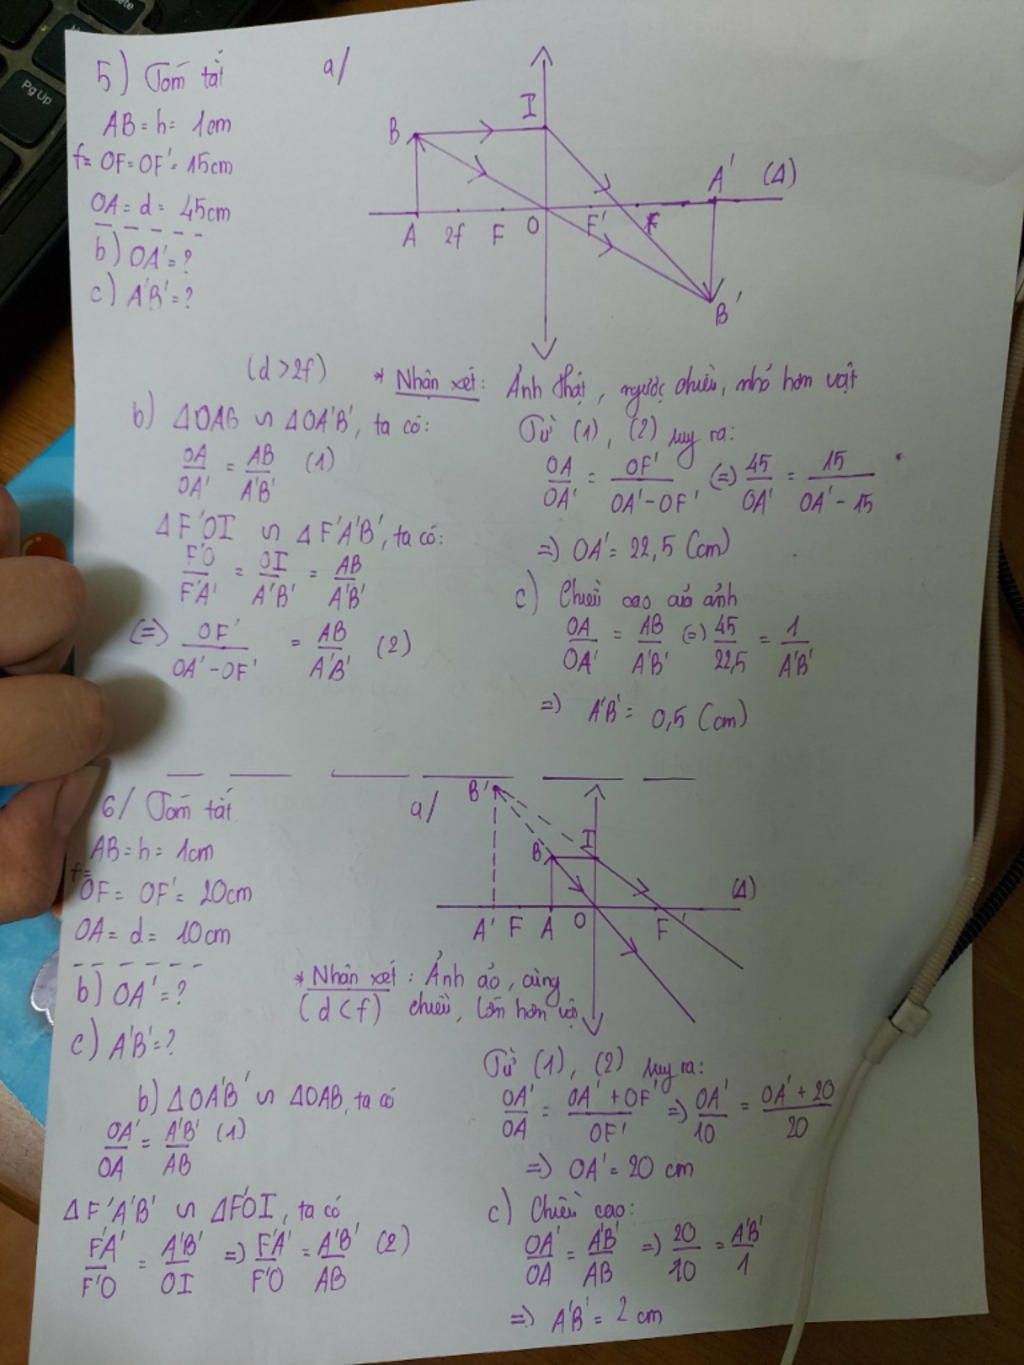 PgUp
5) Tóm tắt
AB = h = 1cm
f = OF = OF' = 15cm
OA = d = 45cm
b) OA' = ?
c) A'B' = ?
a/
I
B
A 2f F O F' F A' (Δ)
B'
(d > 2f) * Nhận xét: Ảnh thật, ngược chiều, nhỏ hơn vật
b) ΔOAB ∽ ΔOA'B', ta có:
OA/OA' = AB/A'B' (1)
ΔF'OI ∽ ΔF'A'B', ta có:
F'O/F'A' = OI/A'B' = AB/A'B'
(=) OF'/(OA' - OF') = AB/A'B' (2)
Từ (1), (2) suy ra:
OA/OA' = OF'/(OA' - OF') (=) 45/OA' = 15/(OA' - 15)
=) OA' = 22,5 (cm)
c) Chiều cao của ảnh
OA/OA' = AB/A'B' (=) 45/22,5 = 1/A'B'
=) A'B' = 0,5 (cm)
6/ Tóm tắt
AB = h = 1cm
f = OF = OF' = 20cm
OA = d = 10cm
b) OA' = ?
c) A'B' = ?
a/
B'
B I
A' F A O F' (Δ)
* Nhận xét: Ảnh ảo, cùng
(d < f) chiều, lớn hơn vật
b) ΔOA'B' ∽ ΔOAB, ta có
OA'/OA = A'B'/AB (1)
ΔF'A'B' ∽ ΔF'OI, ta có
F'A'/F'O = A'B'/OI =) F'A'/F'O = A'B'/AB (2)
Từ (1), (2) suy ra:
OA'/OA = (OA' + OF')/OF' =) OA'/10 = (OA' + 20)/20
=) OA' = 20 cm
c) Chiều cao:
OA'/OA = A'B'/AB =) 20/10 = A'B'/1
=) A'B' = 2 cm